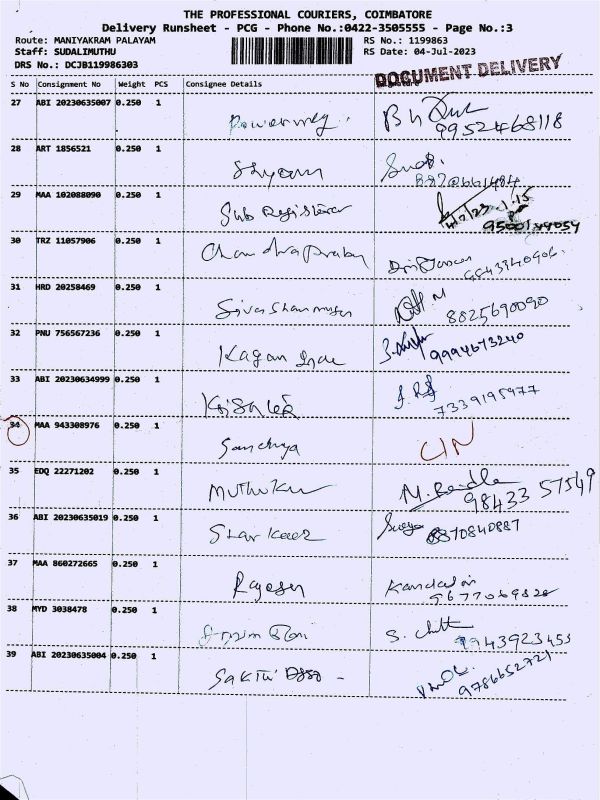 THE PROFESSIONAL COURIERS, COIMBATORE
Delivery Runsheet - PCG - Phone No.:0422-3505555 - Page No.:3
Route: MANIYAKRAM PALAYAM RS No.: 1199863
Staff: SUDALIMUTHU RS Date: 04-Jul-2023
DRS No.: DCJB119986303
DOCUMENT DELIVERY
S No Consignment No Weight PCS Consignee Details
27 ABI 20230635007 0.250 1
9952468118
28 ART 1856521 0.250 1 Shyam
8870661484
29 MAA 102088090 0.250 1 Sub Registrar
9500144054
30 TRZ 11057906 0.250 1 Chandraprabu
9843340906
31 HRD 20258469 0.250 1 Sivashanmugam
8825690090
32 PNU 756567236 0.250 1
9994673240
33 ABI 20230634999 0.250 1
7339195977
34 MAA 943308976 0.250 1 CIN
35 EDQ 22271202 0.250 1 Muthukum
98433 57549
36 ABI 20230635019 0.250 1
8870840887
37 MAA 860272665 0.250 1 Rajesh
9677069828
38 MYD 3038478 0.250 1
9943923453
39 ABI 20230635004 0.250 1 SAKTHI
9786652721